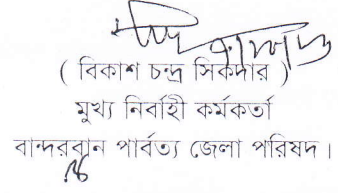 ( বিকাশ চন্দ্র সিকদার )
মুখ্য নির্বাহী কর্মকর্তা
বান্দরবান পার্বত্য জেলা পরিষদ ।